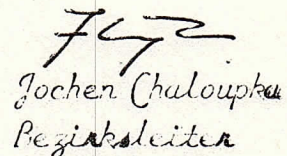 Jochen Chaloupka
Bezirksleiter